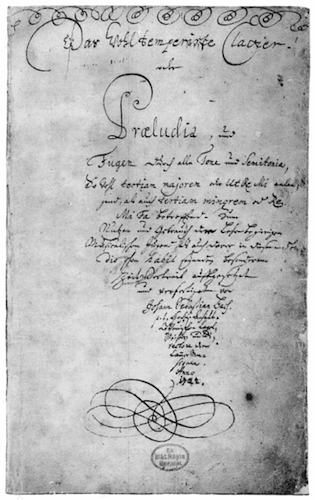 Das Wohltemperirte Clavier.
oder
Præludia, und
Fugen durch alle Tone und Semitonia,
So wohl tertiam majorem oder Ut Re Mi anlan-
gend, als auch tertiam minorem oder Re
Mi Fa betreffend. Zum
Nutzen und Gebrauch der Lehrbegierigen
Musicalischen Jugend, als auch derer in diesem stu-
dio schon habil seyenden besonderem
ZeitVertreib auffgesetzet
und verfertiget von
Johann Sebastian Bach.
p. t. HochFürstl. Anhalt.
Cöthenischen Capel-
Meistern und Di-
rectore derer
Camer Mu-
siquen.
Anno
1722.